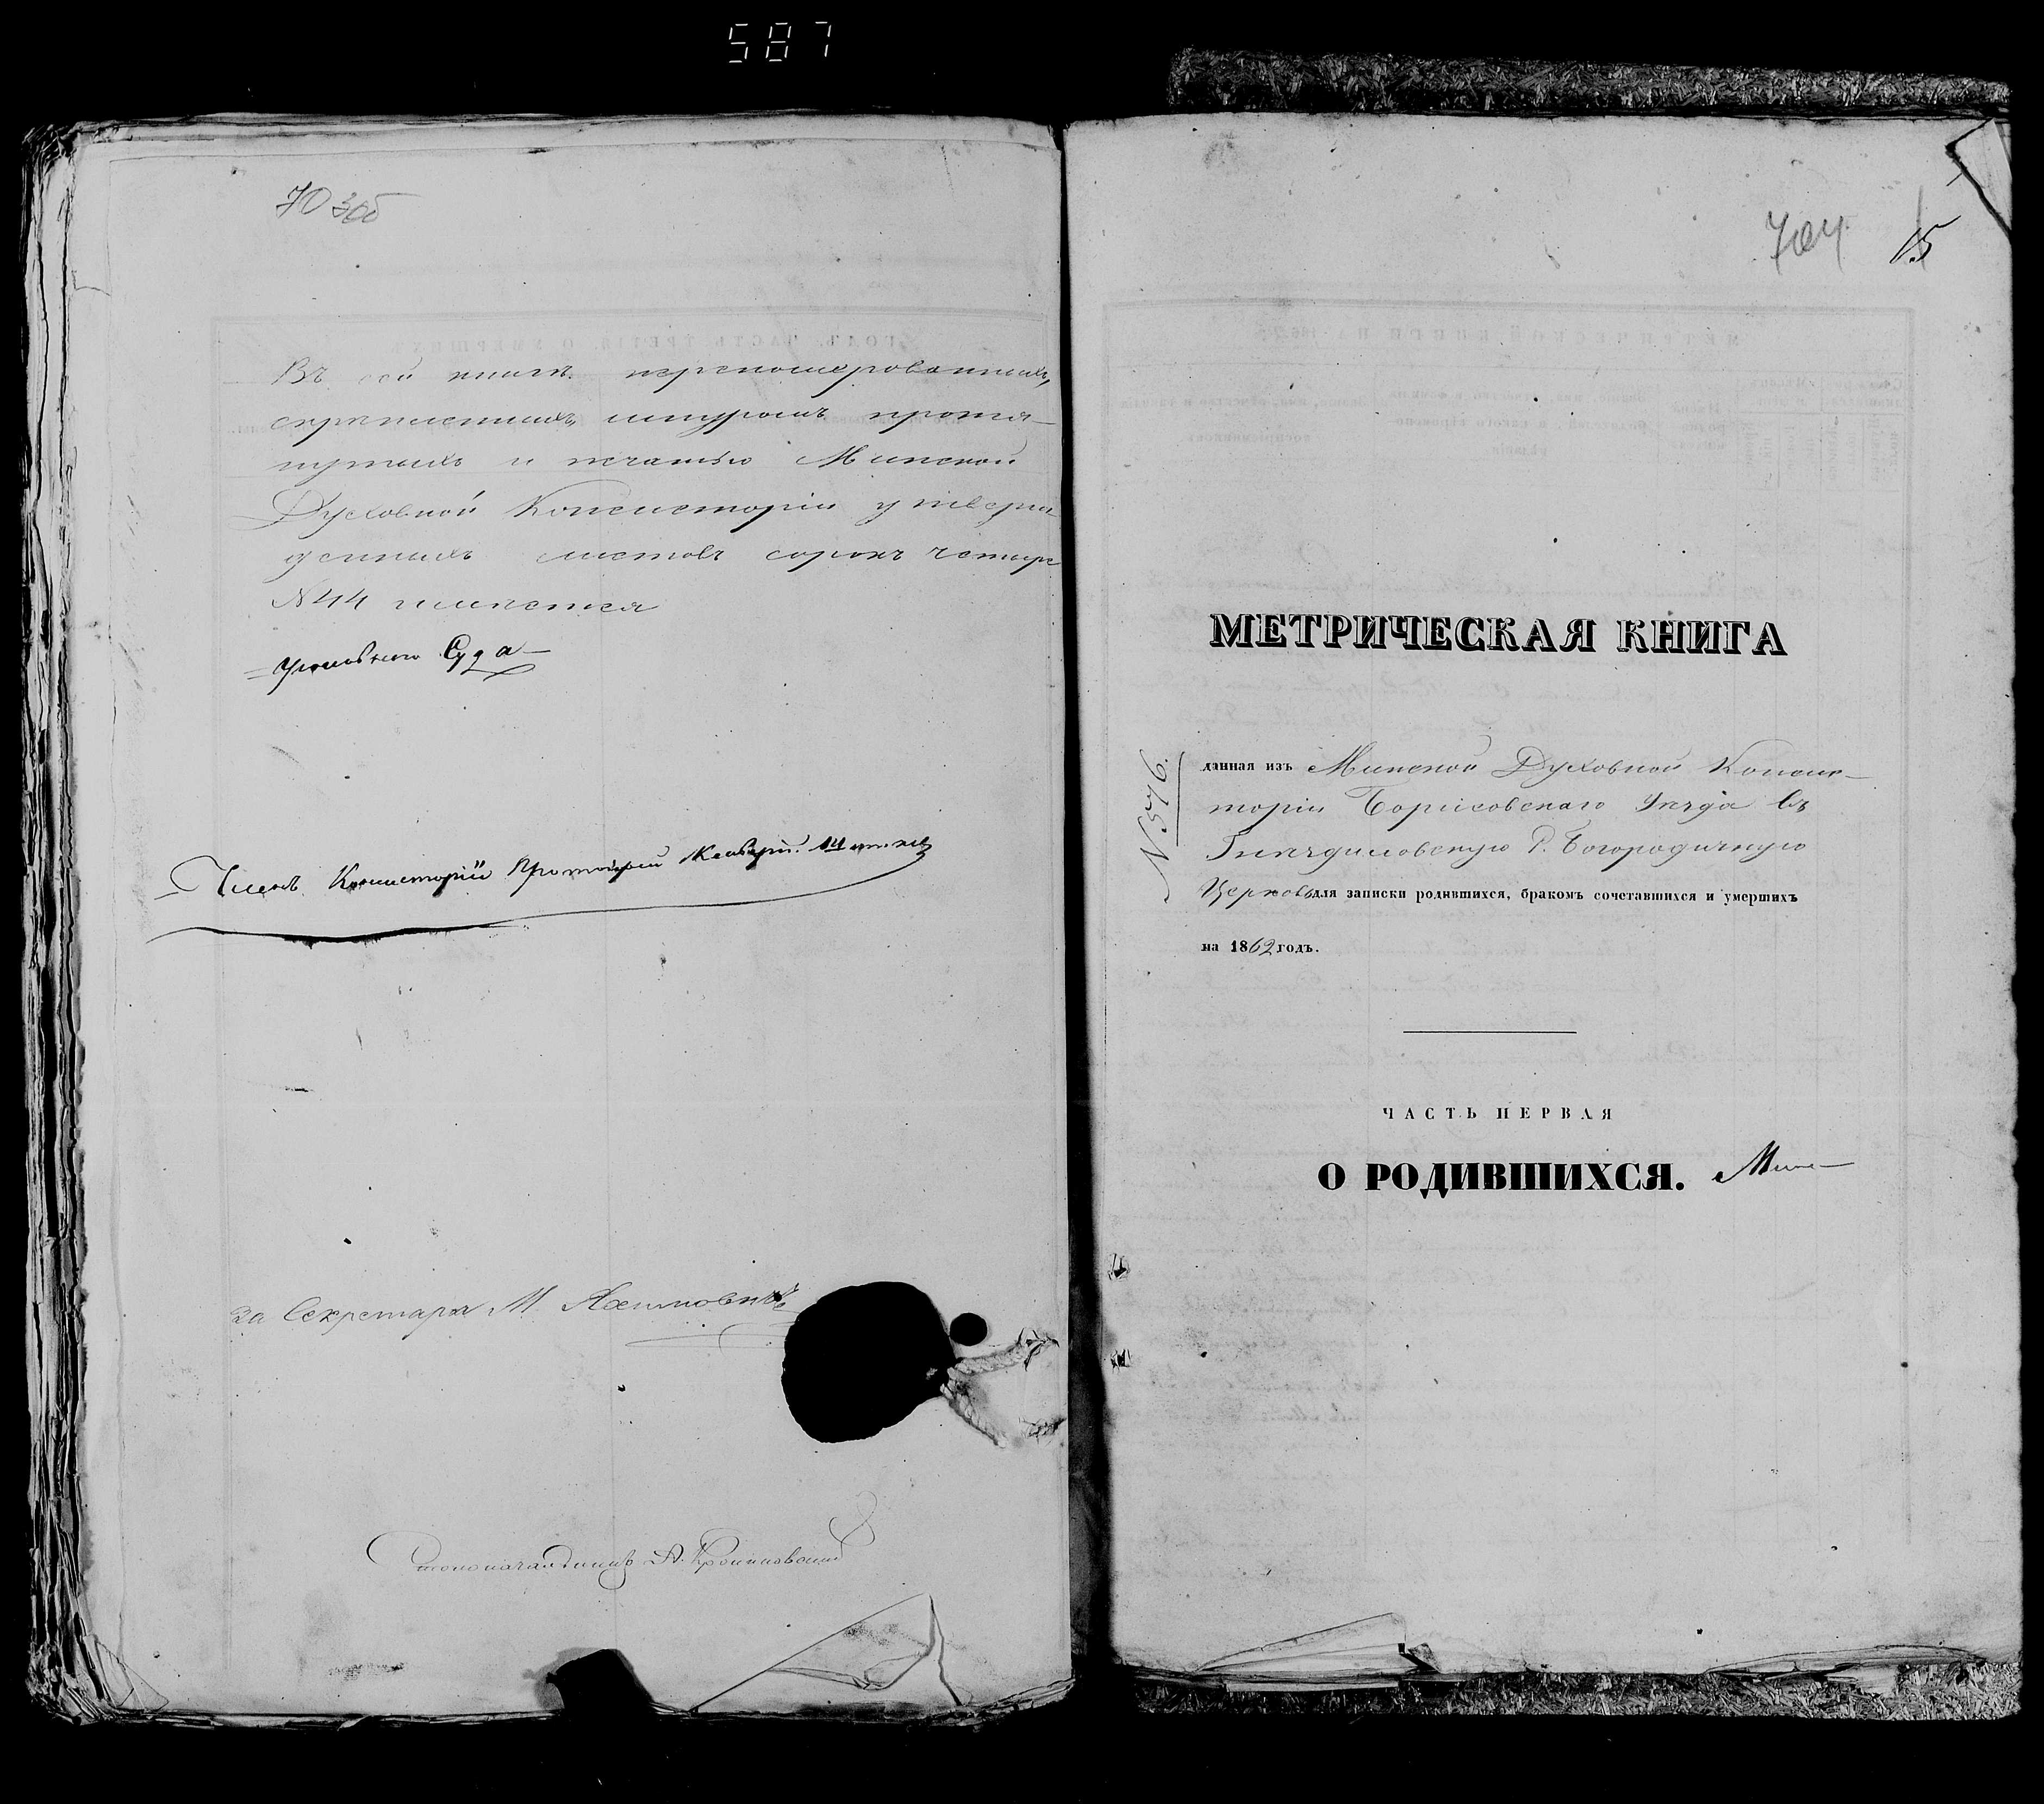 587
70 306
Въ сей книгѣ переномерованныхъ,
скрѣпленныхъ, шнуромъ протя-
нутыхъ и печатью Минской
Духовной Консисторіи утверж
денныхъ листовъ сорокъ четыре
№ 44 имѣется
Суда
Членъ Консисторіи Протоіерей
За Секретаря М.
Столоначальникъ А.
704 15
МЕТРИЧЕСКАЯ КНИГА
№ 576.
данная изъ Минской Духовной Консис-
торіи Борисовскаго Уѣзда въ
Р. Богородичную
Церковь для записки родившихся, бракомъ сочетавшихся и умершихъ
на 1862 годъ.
ЧАСТЬ ПЕРВАЯ
О РОДИВШИХСЯ.